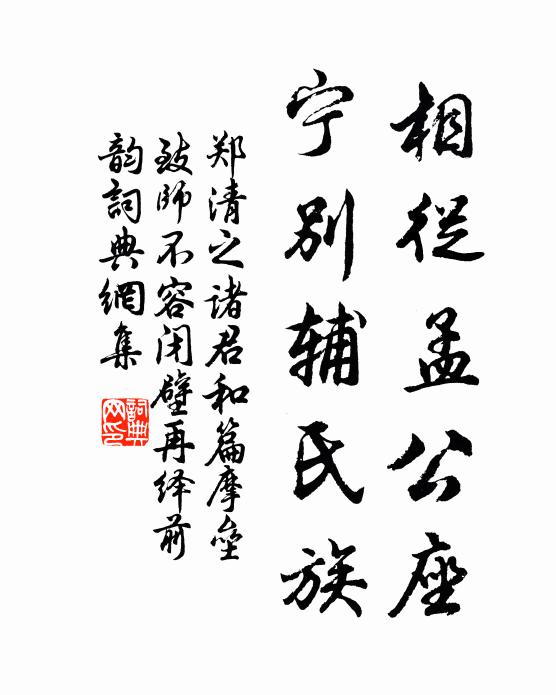 相從孟公座
宁別辅氏族
郑清之诸君和篇摩垒
致師不容闭壁再绎前
韵詞典網集
詞典
网印